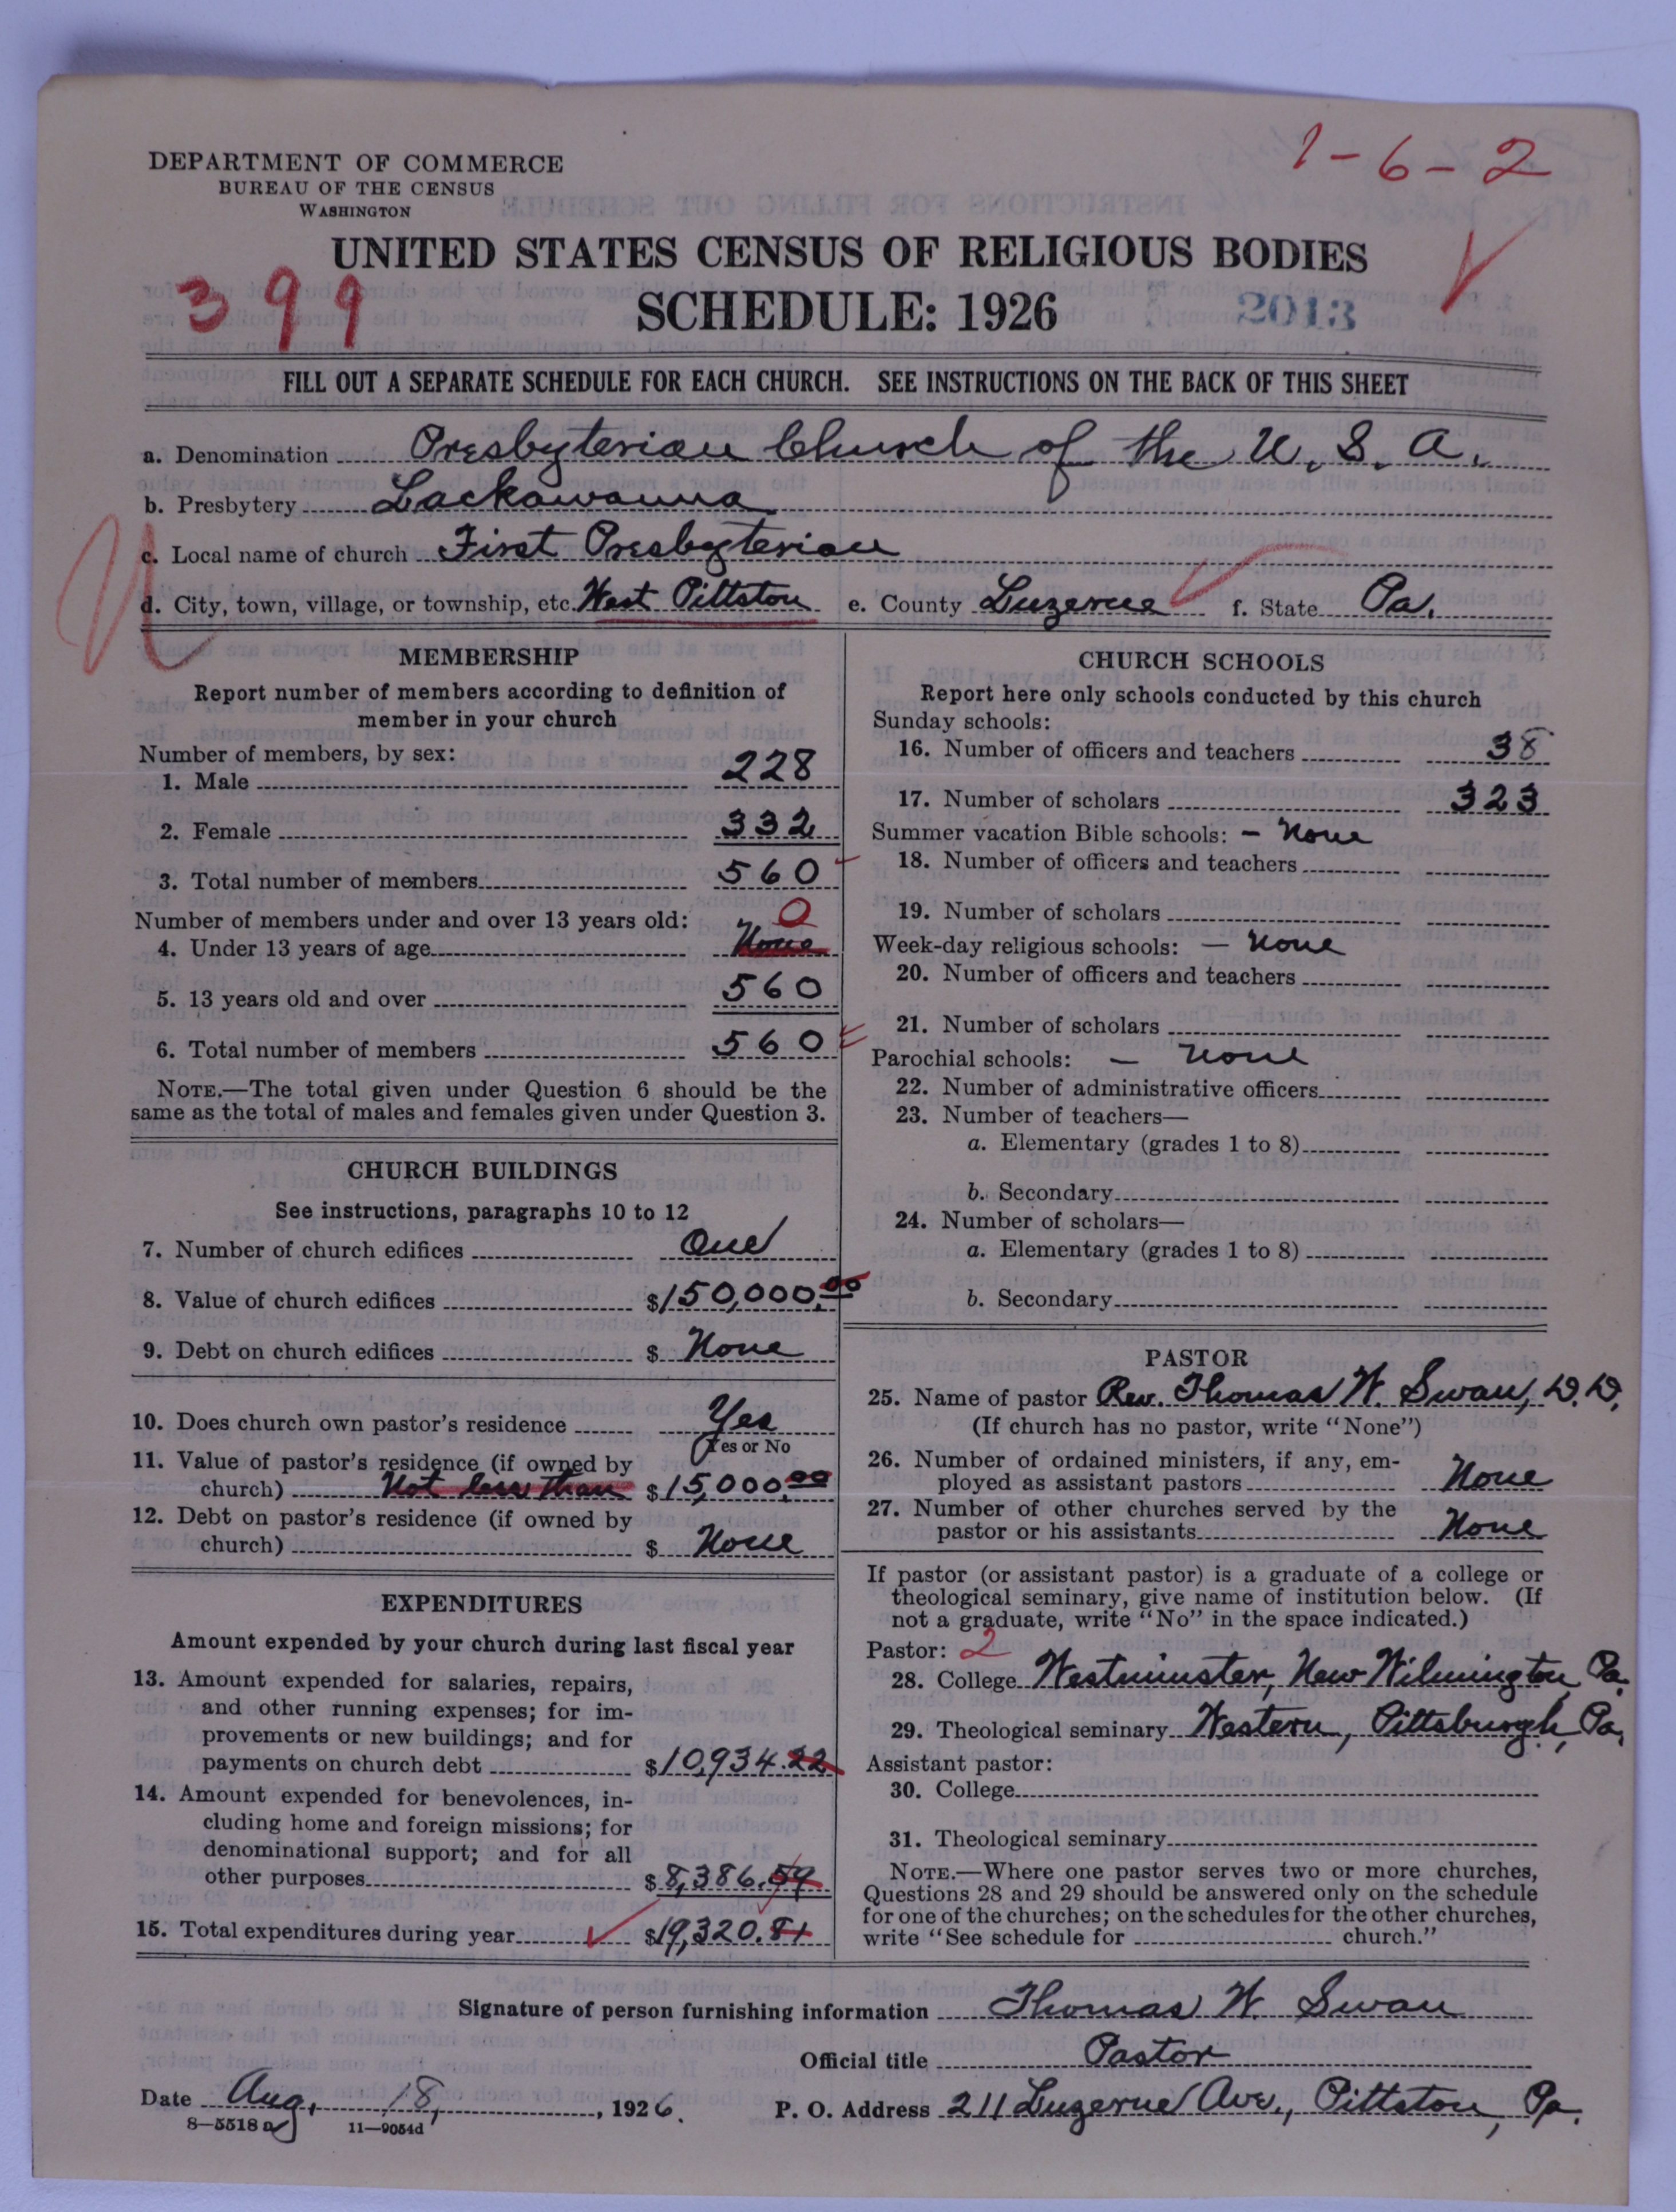 1-6-2
DEPARTMENT OF COMMERCE
BUREAU OF THE CENSUS
WASHINGTON
UNITED STATES CENSUS OF RELIGIOUS BODIES
399
SCHEDULE: 1926
2013
FILL OUT A SEPARATE SCHEDULE FOR EACH CHURCH. SEE INSTRUCTIONS ON THE BACK OF THIS SHEET
a. Denomination Presbyterian Church of the U. S. A.
b. Presbytery Lackawanna
c. Local name of church First Presbyterian
d. City, town, village, or township, etc. West Pittston e. County Luzerne f. State Pa.
MEMBERSHIP
Report number of members according to definition of
member in your church
Number of members, by sex:
1. Male 228
2. Female 332
3. Total number of members 560
Number of members under and over 13 years old: 0
4. Under 13 years of age None
5. 13 years old and over 560
6. Total number of members 560
NOTE.—The total given under Question 6 should be the
same as the total of males and females given under Question 3.
CHURCH BUILDINGS
See instructions, paragraphs 10 to 12
7. Number of church edifices One
8. Value of church edifices $150,000.00
9. Debt on church edifices $ None
10. Does church own pastor's residence Yes
Yes or No
11. Value of pastor's residence (if owned by
church) Not less than $15,000.00
12. Debt on pastor's residence (if owned by
church) $ None
EXPENDITURES
Amount expended by your church during last fiscal year
13. Amount expended for salaries, repairs,
and other running expenses; for im-
provements or new buildings; and for
payments on church debt $10,934.22
14. Amount expended for benevolences, in-
cluding home and foreign missions; for
denominational support; and for all
other purposes $8,386.59
15. Total expenditures during year $19,320.81
CHURCH SCHOOLS
Report here only schools conducted by this church
Sunday schools:
16. Number of officers and teachers 38
17. Number of scholars 323
Summer vacation Bible schools: - None
18. Number of officers and teachers
19. Number of scholars
Week-day religious schools: — None
20. Number of officers and teachers
21. Number of scholars
Parochial schools: — None
22. Number of administrative officers
23. Number of teachers—
a. Elementary (grades 1 to 8)
b. Secondary
24. Number of scholars—
a. Elementary (grades 1 to 8)
b. Secondary
PASTOR
25. Name of pastor Rev. Thomas W. Swan, D.D.
(If church has no pastor, write "None")
26. Number of ordained ministers, if any, em-
ployed as assistant pastors None
27. Number of other churches served by the
pastor or his assistants None
If pastor (or assistant pastor) is a graduate of a college or
theological seminary, give name of institution below. (If
not a graduate, write "No" in the space indicated.)
Pastor: 2
28. College Westminster, New Wilmington, Pa.
29. Theological seminary Western, Pittsburgh, Pa.
Assistant pastor:
30. College
31. Theological seminary
NOTE.—Where one pastor serves two or more churches,
Questions 28 and 29 should be answered only on the schedule
for one of the churches; on the schedules for the other churches,
write "See schedule for church."
Signature of person furnishing information Thomas W. Swan
Official title Pastor
Date Aug. 18, 1926. P. O. Address 211 Luzerne Ave., Pittston, Pa.
8—5518a 11—9054d